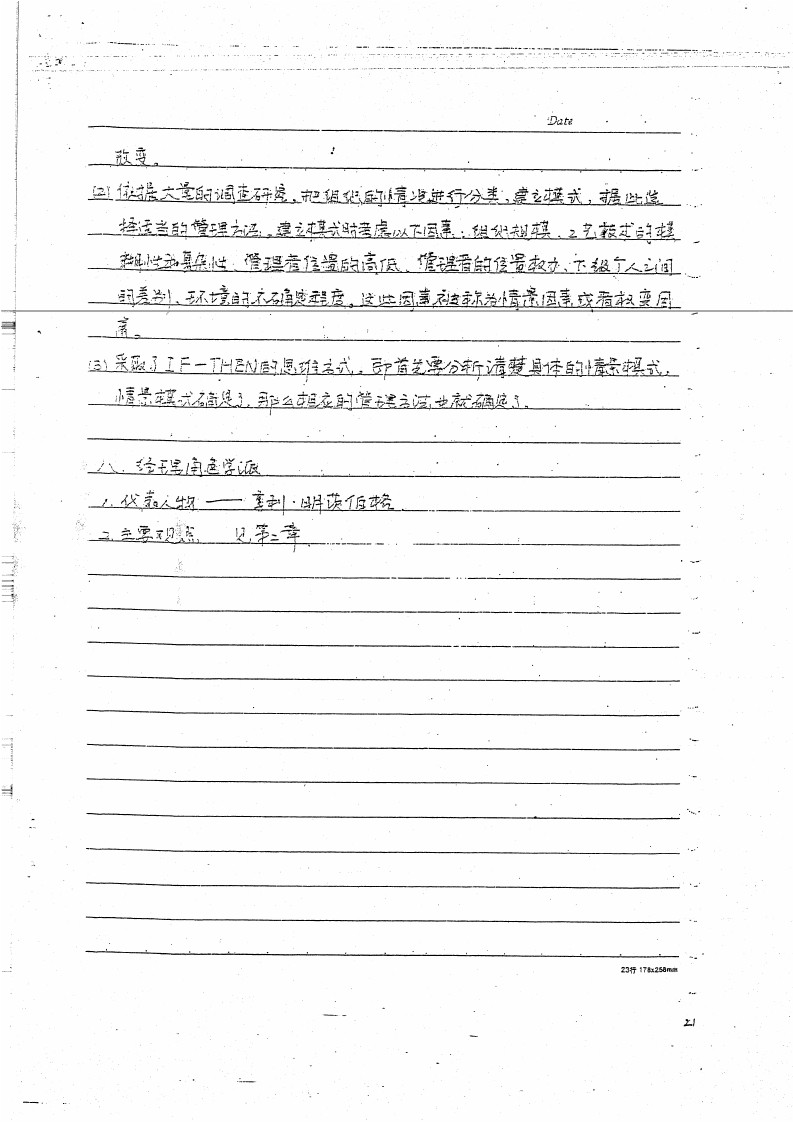 Date
改变。
(2) 依据大量的调查研究,把组织的情况进行分类,建立模式,据此选
择适当的管理方法。建立模式时考虑以下因素:组织规模、工艺技术的模
糊性和复杂性、管理者位置的高低、管理者的位置权力、下级个人之间
的差别、环境的不确定程度。这些因素被称为情景因素或者权变因
素。
(3) 采取了IF—THEN的思维方式,即首先要分析清楚具体的情景模式,
情景模式确定了,那么相应的管理方法也就确定了。
八、经理角色学派
1. 代表人物——亨利·明茨伯格
2. 主要观点 见第二章
23行 178x258mm
21